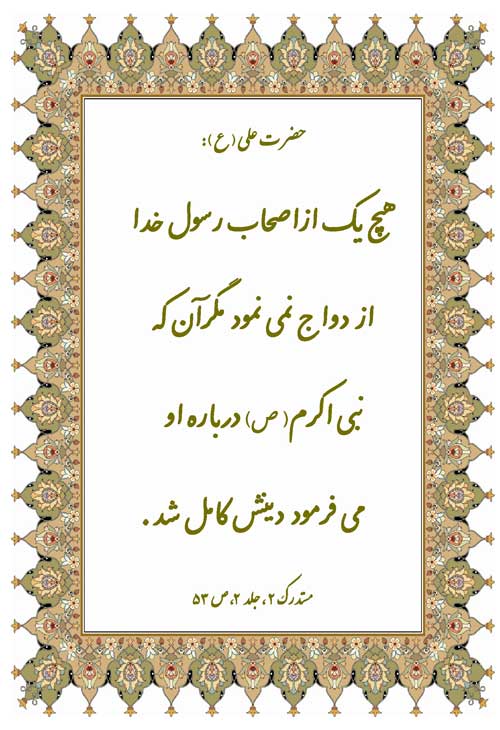 حضرت علی (ع):
هیچ یک ازاصحاب رسول خدا
از دواج نمی نمود مگرآن که
نبی اکرم (ص) درباره او
می فرمود دینش کامل شد.
مستدرک ۲، جلد ۲، ص ۵۳